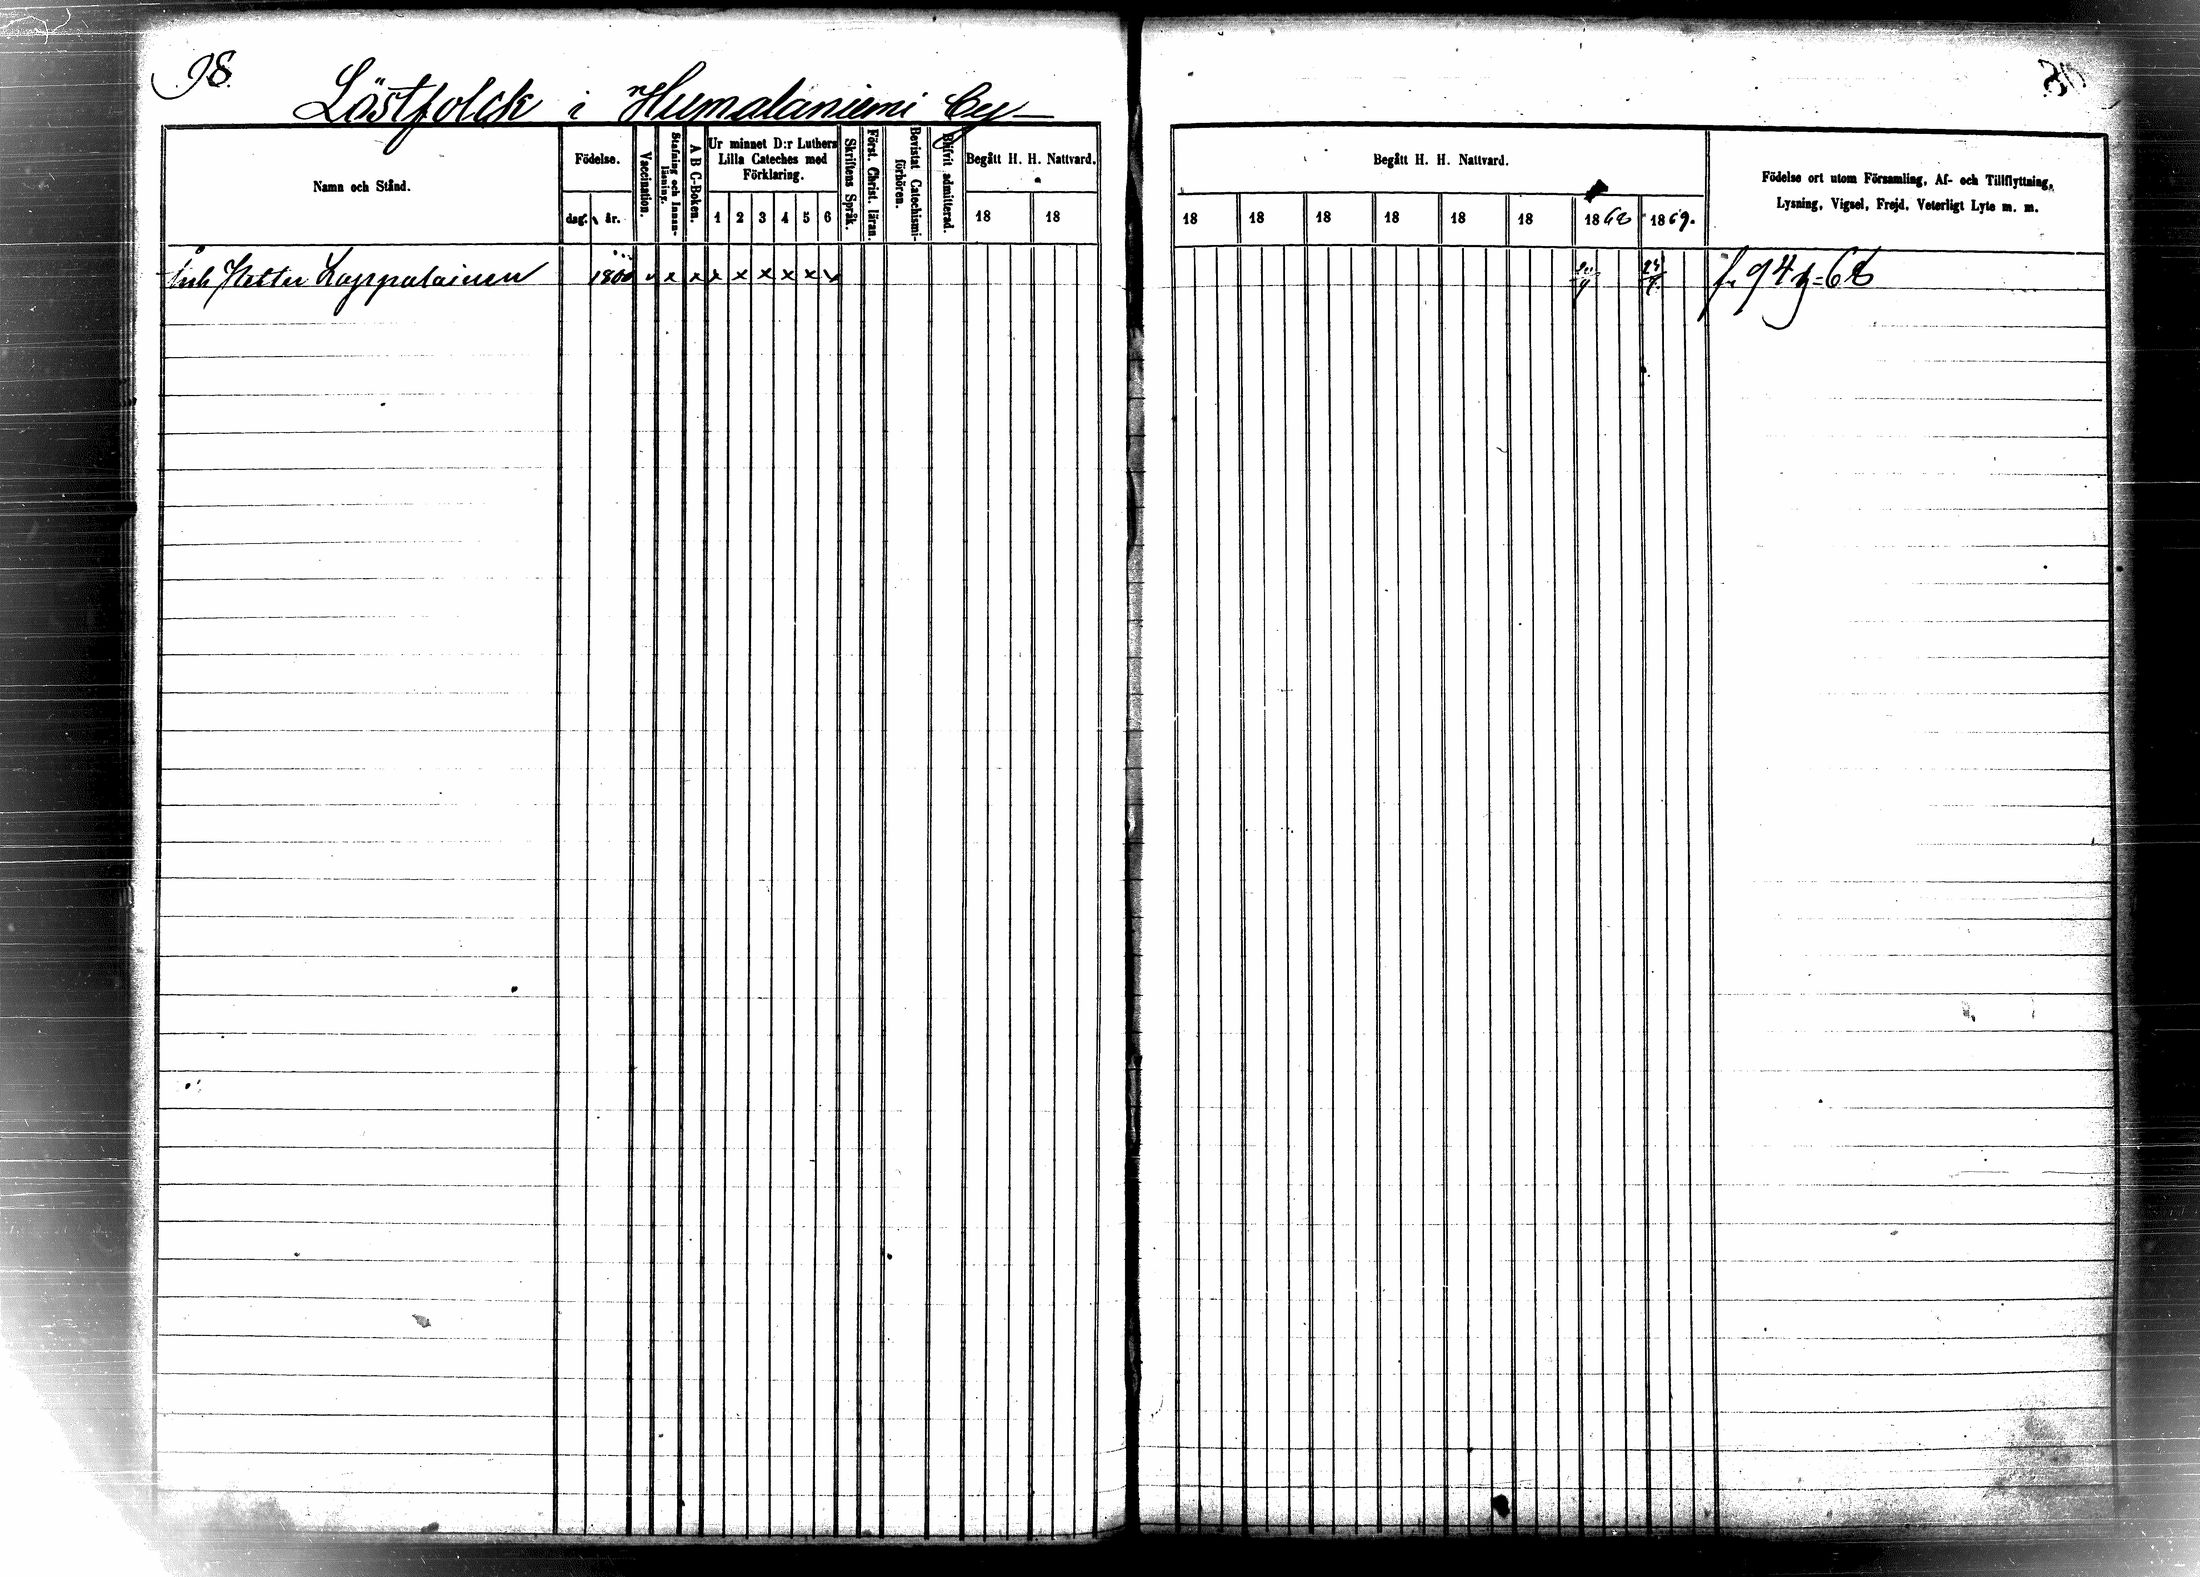 98.
Löstfolck i Humalaniemi by
Namn och Stånd.
Födelse.
dag.
år.
Vaccination.
Stafning och Innan-
läsning.
A B C-Boken.
Ur minnet D:r Luthers
Lilla Cateches med
Förklaring.
1 2 3 4 5 6
Skriftens Språk.
Först. Christ. läran.
Bevistat Catechismi-
förhören.
Blifvit admitterad.
Begått H. H. Nattvard.
18 18
Petter Lappalainen 1800 x x x x x x x x
Begått H. H. Nattvard.
18 18 18 18 18 18 1868 1869.
Födelse ort utom Församling, Af- och Tillflyttning,
Lysning, Vigsel, Frejd, Veterligt Lyte m. m.